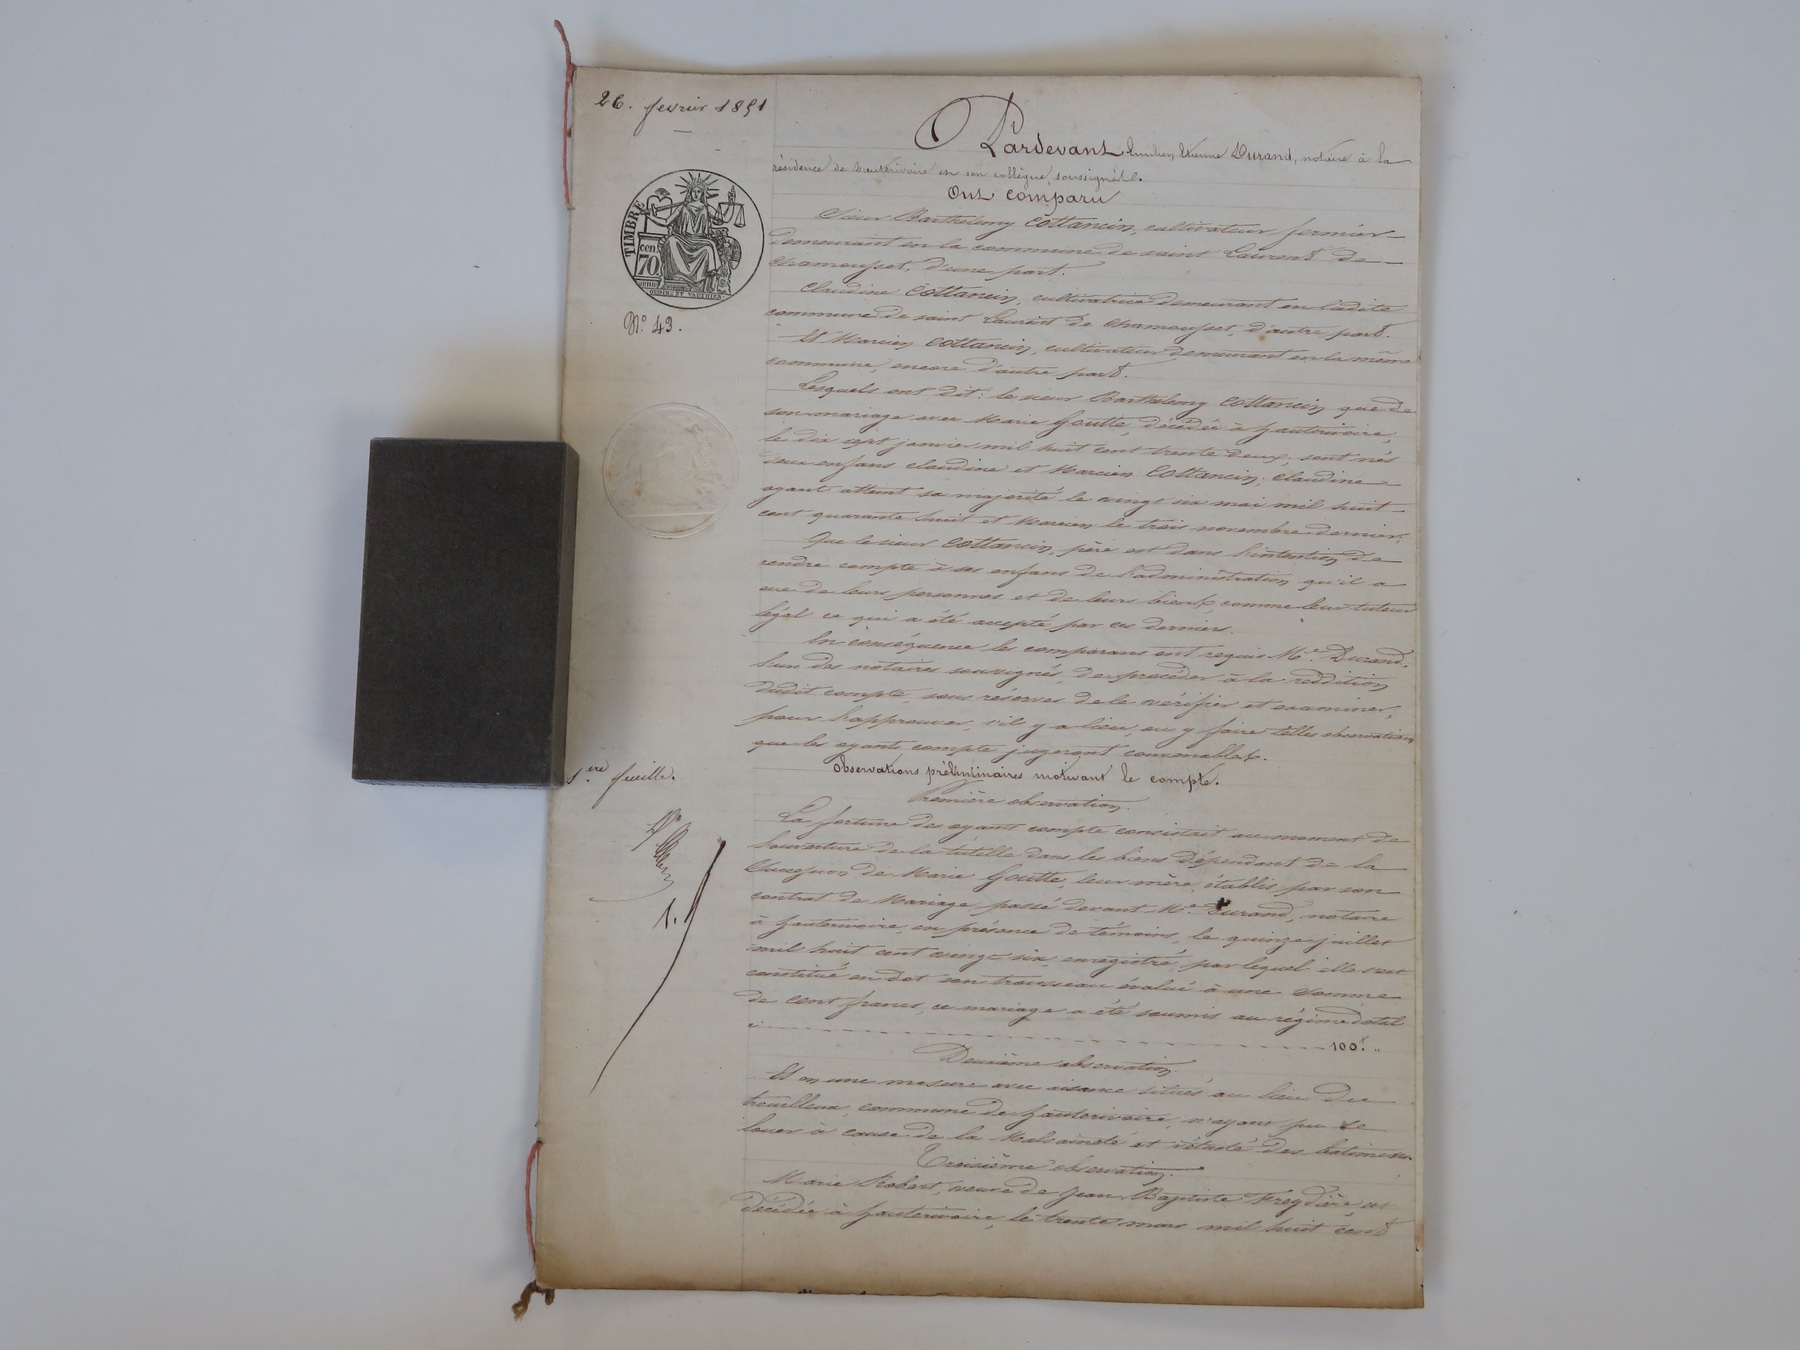 26. fevrier 1851
Pardevant Emilien Etienne Durand, notaire à la
résidence de hauterivoire en son collègue, soussignés.
Ont comparu
TIMBRE
cen.
70
N.° 43.
Sieur Barthelemy Cottancin, cultivateur fermier
demeurant en la commune de saint Laurent de
chamousset, d'une part.
Claudine Cottancin, cultivatrice demeurant en ladite
commune de saint Laurent de chamousset, d'autre part.
Et Marcien Cottancin, cultivateur, demeurant en la même
commune, encore d'autre part.
Lesquels ont dit: le sieur Barthelemy Cottancin que de
son mariage avec Marie Goutte, décédée à hauterivoire,
le dix sept janvier mil huit cent trente deux, sont nés
deux enfans claudine et Marcien Cottancin; claudine
ayant atteint sa majorité le vingt six mai mil huit
cent quarante huit et Marcien le trois novembre dernier.
Que le sieur Cottancin, père est dans l'intention de
rendre compte à ses enfans de l'administration qu'il a
eue de leurs personnes et de leurs biens, comme leur tuteur
légal ce qui a été accepté par ces derniers.
En conséquence, les comparans ont requis M.e Durand,
l'un des notaires soussignés, de procéder à la reddition
dudit compte, sous réserves de le vérifier et examiner,
pour l'approuver, s'il y a lieu, ou y faire telles observations
que les ayants compte jugeront convenables.
1.ere feuille.
observations préliminaires motivant le compte.
Première observation.
La fortune des ayants compte consistait au moment de
l'ouverture de la tutelle dans les biens dépendant de la
Succession de Marie Goutte, leur mère, établis par son
contrat de Mariage, passé devant M.e Durand, notaire
à hauterivoire, en présence de témoins, le quinze juillet
mil huit cent vingt six, enregistré, par lequel elle s'est
constitué en dot son trousseau évalué à une somme
de cent francs, ce mariage a été soumis au régime dotal
ci 100.f "
1.
Deuxième observation.
Et en une masure avec aisance situés au lieu de
trouilleux, commune de hauterivoire, n'ayant pu se
louer à cause de la Malsaineté et vétusté des batimens.
Troisième observation.
Marie Robert, veuve de Jean Baptiste est
décédée à hauterivoire, le trente mars mil huit cent